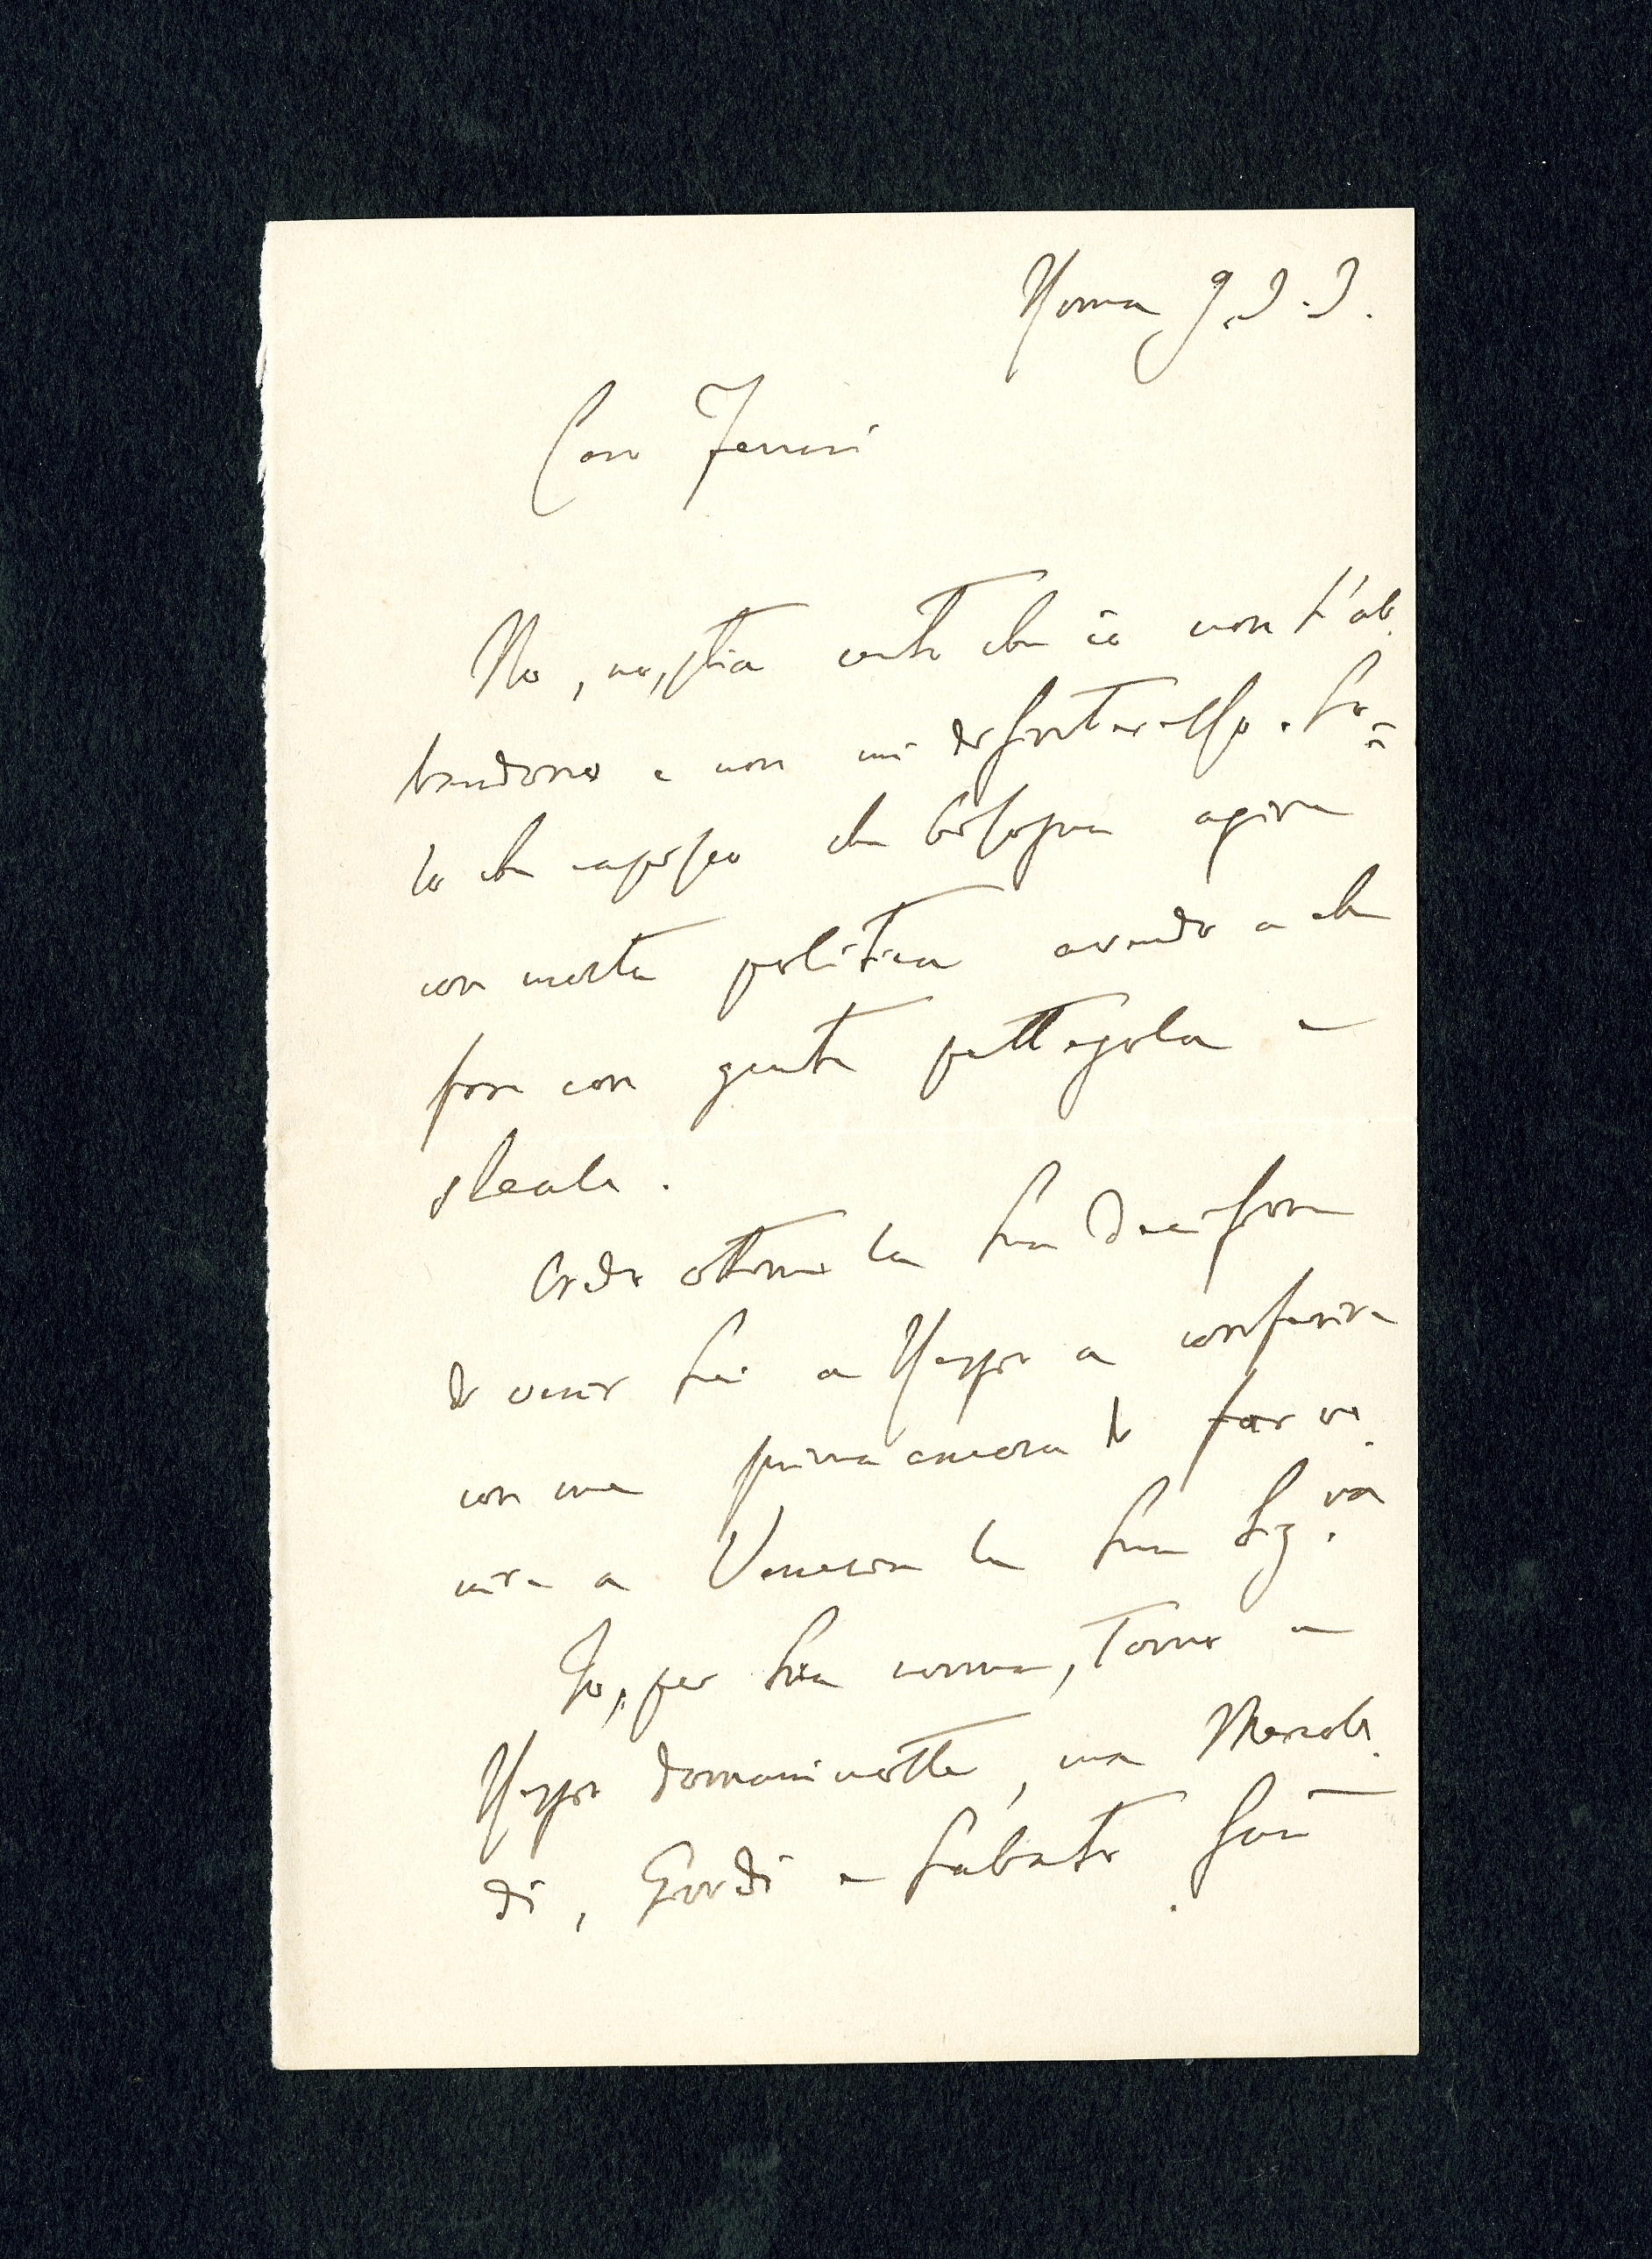 Roma 9.3.3.
Caro Ferrari
No, no, stia certo che io non L'ab.
bandono e non mi disinteresso. So=
lo che capisco che bisogna agire
con molta politica avendo a che
fare con gente pettegola e
sleale.
Lodo ottima la Sua decisione
di venir Lei a Reggio a conferire
con me prima ancora di far ve.
nire a Venezia la Sua Sig.ra
Io, per Sua norma, torno a
Reggio domani notte, ma Mercole.
dì, Giovedì e Sabato sarò